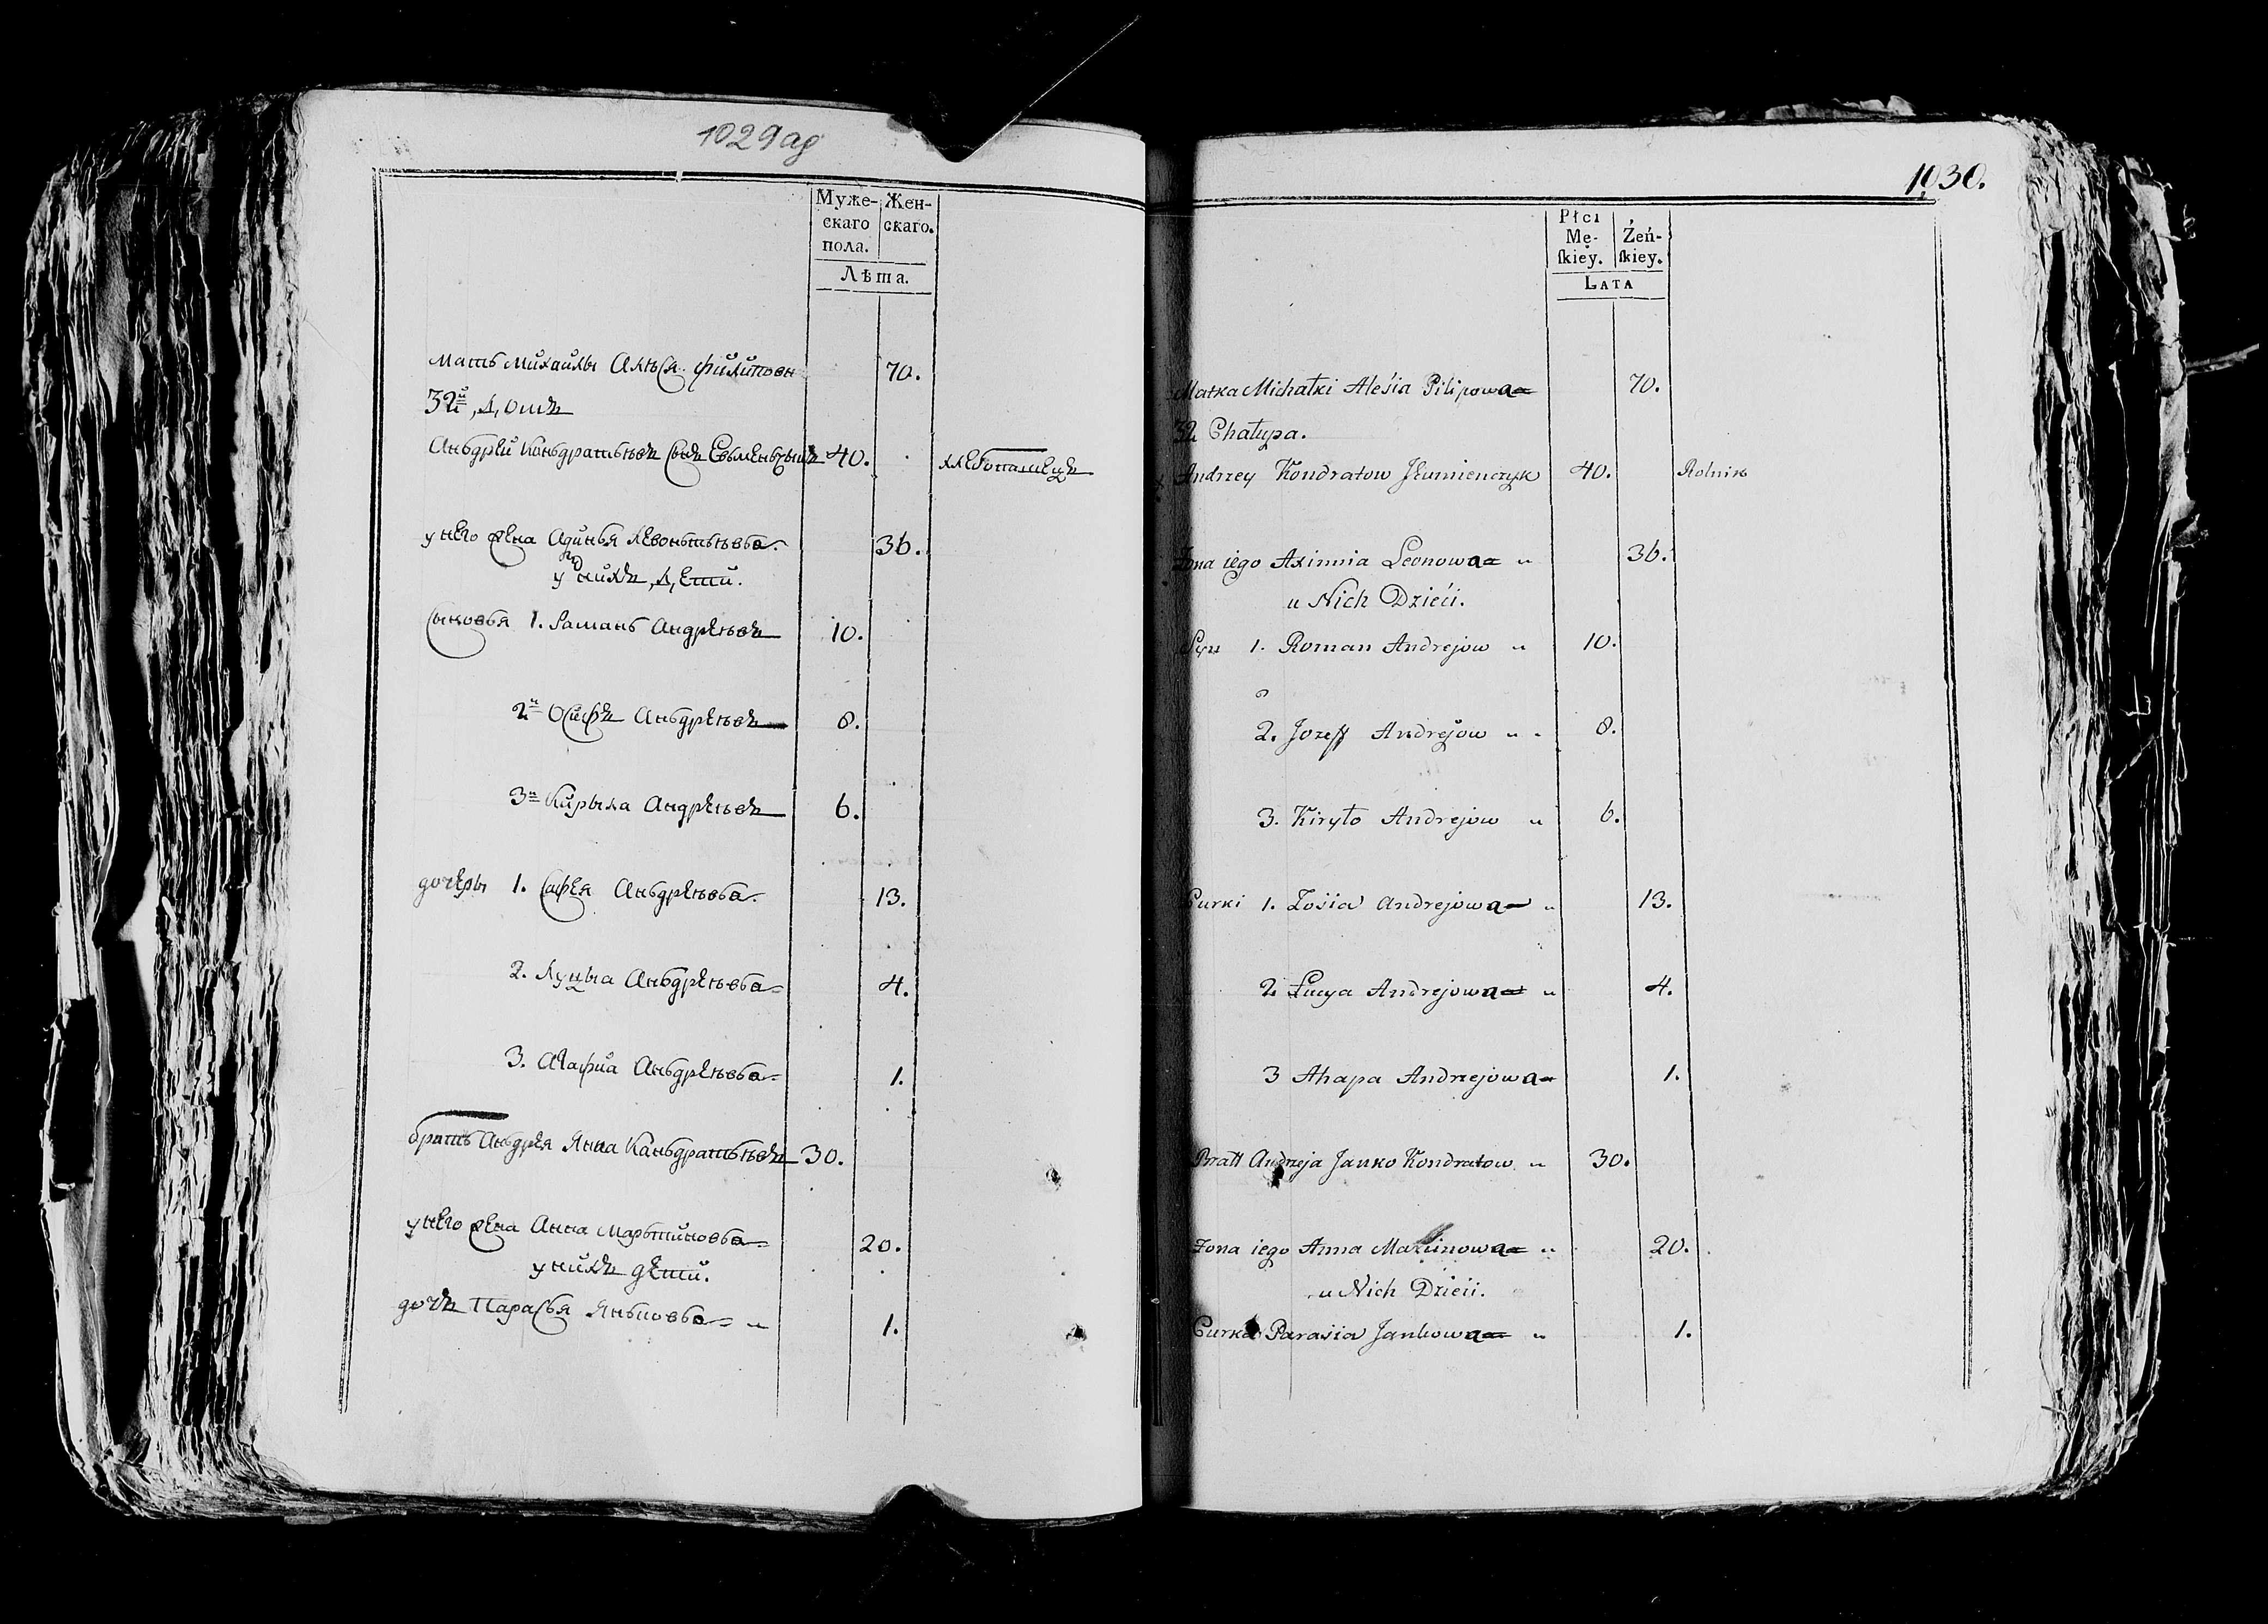 1029 ад
Муже-
скаго
пола.
Жен-
скаго.
Лѣта.
мать Михайлы Алѣся Филипов
70.
32й домъ
Аньдрей Каньдратьѣвъ сынъ
40.
хлебопашецъ
у него жена Левоньтьѣвва
36.
у нихъ дети.
сыновья 1. Рамань Андреѣвъ
10.
2й Осифъ Аньдреѣвъ
8.
3й Кирыла Андреѣвъ
6.
дочеры 1. Сафея Аньдреѣвва
13.
2. Луцыа Аньдреѣвва
4.
3. Агафиа Аньдреѣвва
1.
брать Аньдрея Янка Каньдратьѣвъ
30.
у него жена Анна Марьтиновва
20.
у нихъ дети.
дочъ Парасья Яньковва
1.
1030.
Płci
Mę-
ſkiey.
Żeń-
ſkiey.
LATA
Matka Michałki Aleśia Pilipowa
70.
32 Chałupa.
Andrzey Kondratow Jhumienczyk
40.
Rolnik
Żona iego Axinnia Leonowa „
36.
u Nich Dzieći.
Syn 1. Roman Andrejow „
10.
2. Jozeff Andrejow „ „
8.
3. Kiryło Andrejow „
6.
Curki 1. Zosia Andrejowa „
13.
2 Łucya Andrejowa „
4.
3 Ahapa Andrzejowa
1.
Bratt Andrzeja Janko Kondratow „
30.
Żona iego Anna Marcinowa „
20.
u Nich Dzieći.
Curka Parasia Jankowa „
1.